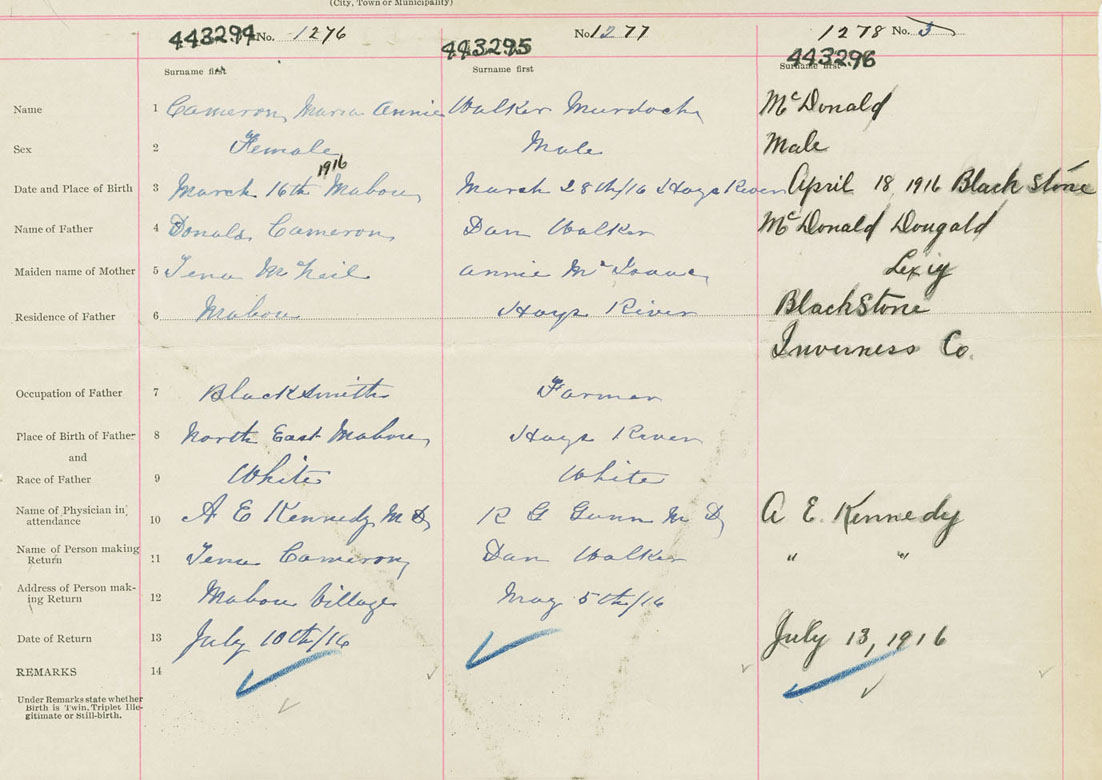 (City, Town or Municipality)
443294 No. 1276 443295 No. 1277 1278 No. 3 443296
Surname first Surname first Surname first
Name 1 Cameron, Maria Annie Walker Murdoch McDonald
Sex 2 Female Male Male
1916
Date and Place of Birth 3 March 16th Mabou March 28th/16 Hays River April 18, 1916 Black Stone
Name of Father 4 Donald Cameron Dan Walker McDonald Dougald
Maiden name of Mother 5 Tena McNeil Annie McIsaac Lexiy
Residence of Father 6 Mabou Hays River BlackStone
Inverness Co.
Occupation of Father 7 Blacksmith Farmer
Place of Birth of Father 8 North East Mabou Hays River
and
Race of Father 9 White White
Name of Physician in attendance 10 A E Kennedy M D R G Gunn M D A E. Kennedy
Name of Person making Return 11 Tena Cameron Dan Walker " "
Address of Person making Return 12 Mabou Village May 5th/16
Date of Return 13 July 10th/16 July 13, 1916
REMARKS 14
Under Remarks state whether
Birth is Twin, Triplet Ille-
gitimate or Still-birth.